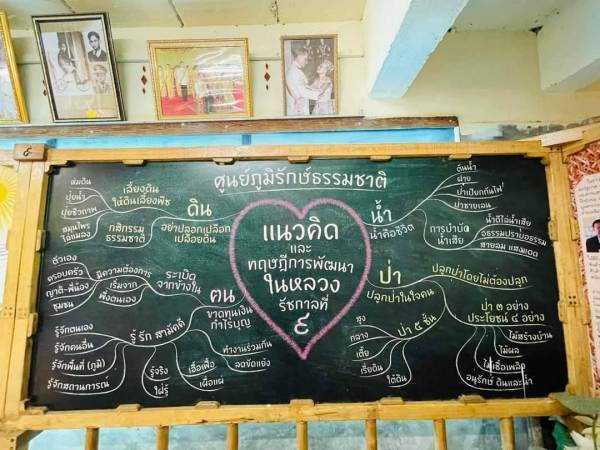 ศูนย์ภูมิรักษ์ธรรมชาติ
แนวคิด
และ
ทฤษฎีการพัฒนา
ในหลวง
รัชกาลที่
๙
ดิน
อย่าปลอกเปลือก
เปลือยดิน
เลี้ยงดิน
ให้ดินเลี้ยงพืช
ห่มดิน
ปุ๋ยน้ำ
ปุ๋ยชีวภาพ
กสิกรรม
ธรรมชาติ
สมุนไพร
ไล่แมลง
น้ำ
น้ำคือชีวิต
ต้นน้ำ
ฝาย
ป่าเปียกกันไฟ
ป่าชายเลน
การบำบัด
น้ำเสีย
น้ำดีไล่น้ำเสีย
อธรรมปราบอธรรม
สายลม แสงแดด
คน
ขาดทุนเงิน
กำไรบุญ
ระเบิด
จากข้างใน
มีความต้องการ
เริ่มจาก
พึ่งตนเอง
ตัวเอง
ครอบครัว
ญาติ-พี่น้อง
ชุมชน
รู้ รัก สามัคคี
รู้จักตนเอง
รู้จักคนอื่น
รู้จักพื้นที่ (ภูมิ)
รู้จักสถานการณ์
รู้จริง
ใฝ่รู้
เอื้อเฟื้อ
เผื่อแผ่
ทำงานร่วมกัน
ลดขัดแย้ง
ป่า
ปลูกป่าในใจคน
ปลูกป่าโดยไม่ต้องปลูก
ป่า ๓ อย่าง
ประโยชน์ ๔ อย่าง
ไม้สร้างบ้าน
ไม้ผล
ไม้เชื้อเพลิง
อนุรักษ์ ดินและน้ำ
ป่า ๕ ชั้น
สูง
กลาง
เตี้ย
เรี่ยดิน
ใต้ดิน